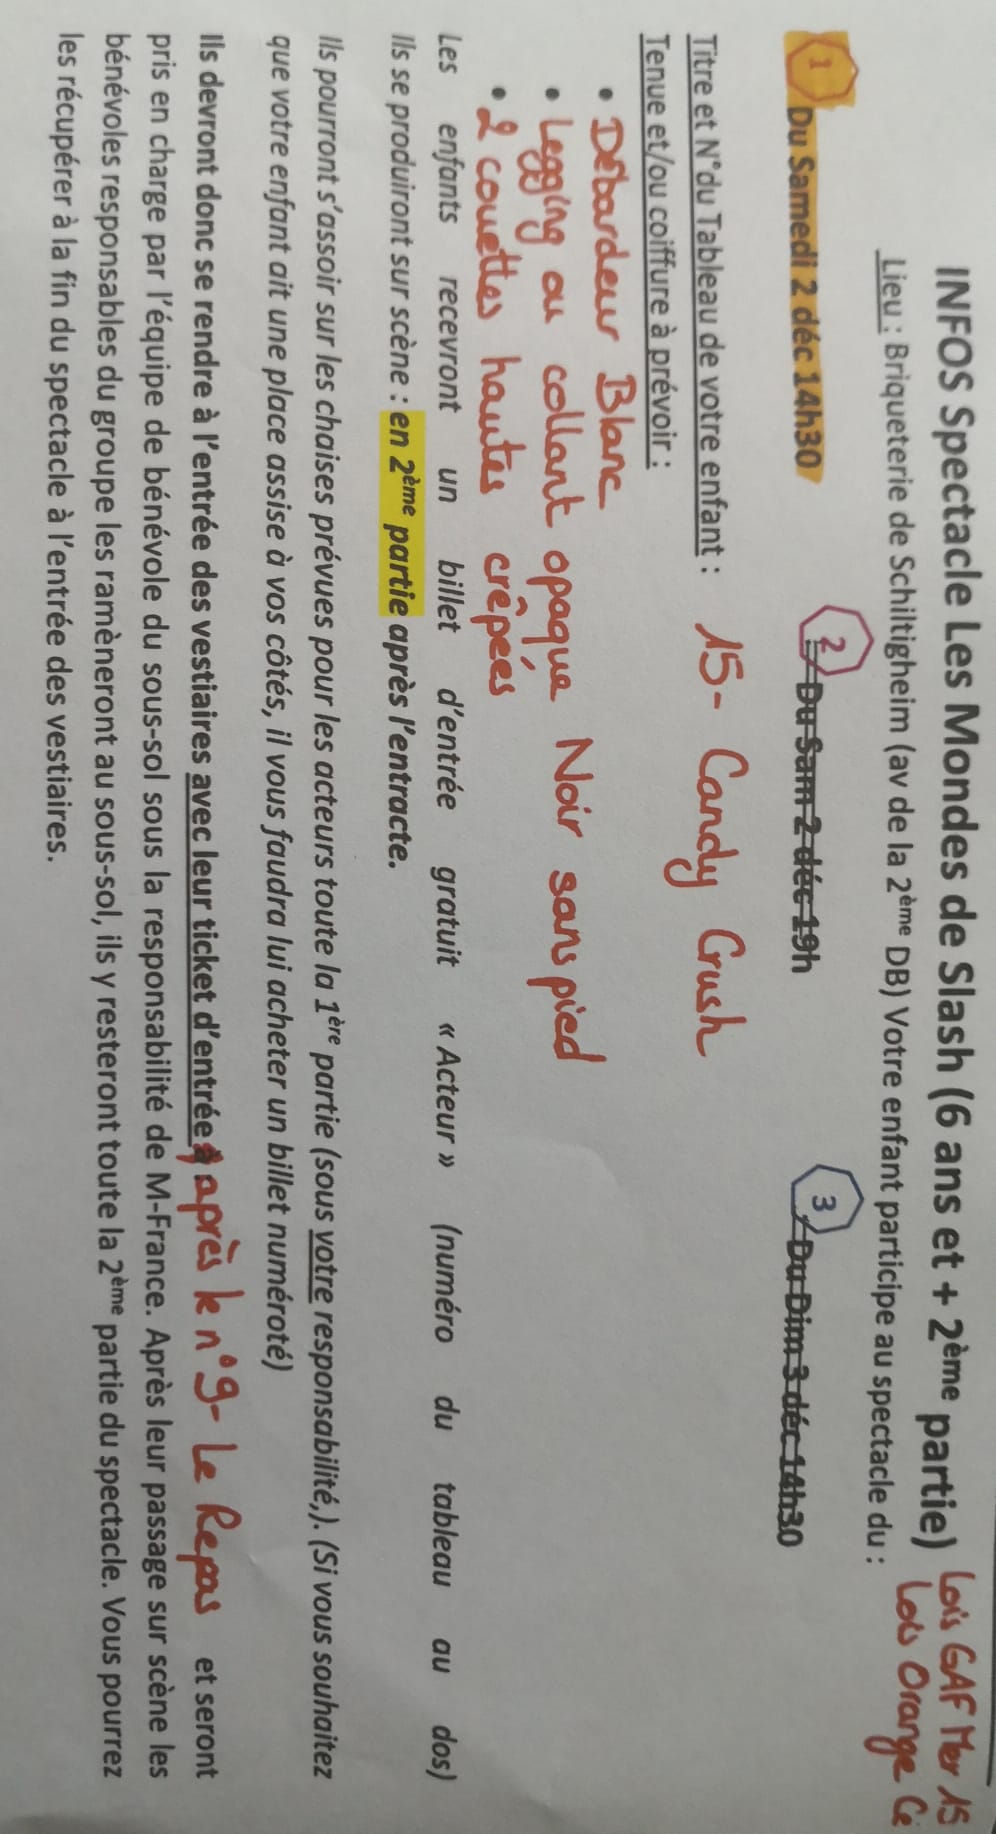 INFOS Spectacle Les Mondes de Slash (6 ans et + 2ème partie) Lois GAF Mer 15
Lieu : Briqueterie de Schiltigheim (av de la 2ème DB) Votre enfant participe au spectacle du : Lois Orange
1 Du Samedi 2 déc 14h30 2 Du Sam 2 déc 19h 3 Du Dim 3 déc 14h30
Titre et N°du Tableau de votre enfant : 15- Candy Crush
Tenue et/ou coiffure à prévoir :
• Débardeur Blanc
• Legging ou collant opaque Noir sans pied
• 2 couettes hautes crêpées
Les enfants recevront un billet d'entrée gratuit « Acteur » (numéro du tableau au dos)
Ils se produiront sur scène : en 2ème partie après l'entracte.
Ils pourront s'assoir sur les chaises prévues pour les acteurs toute la 1ère partie (sous votre responsabilité,). (Si vous souhaitez
que votre enfant ait une place assise à vos côtés, il vous faudra lui acheter un billet numéroté)
Ils devront donc se rendre à l'entrée des vestiaires avec leur ticket d'entrée après le n°9- Le Repas et seront
pris en charge par l'équipe de bénévole du sous-sol sous la responsabilité de M-France. Après leur passage sur scène les
bénévoles responsables du groupe les ramèneront au sous-sol, ils y resteront toute la 2ème partie du spectacle. Vous pourrez
les récupérer à la fin du spectacle à l'entrée des vestiaires.